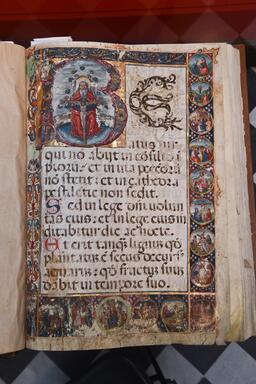 B E
atus vir
qui no abijt in cōsilio ī
pioru: et in via pccōrū
nō stetit: et in cathedra
pestilētie non sedit.
Sed in lege dn̄i volun
tas eius: et in lege eius m̄
ditabitur die ac nocte.
Et erit tanq̄ lignus qd̄
plantatū ē secus decursꝰ
aquarū: qd̄ fructū suū
dabit in tempore suo.